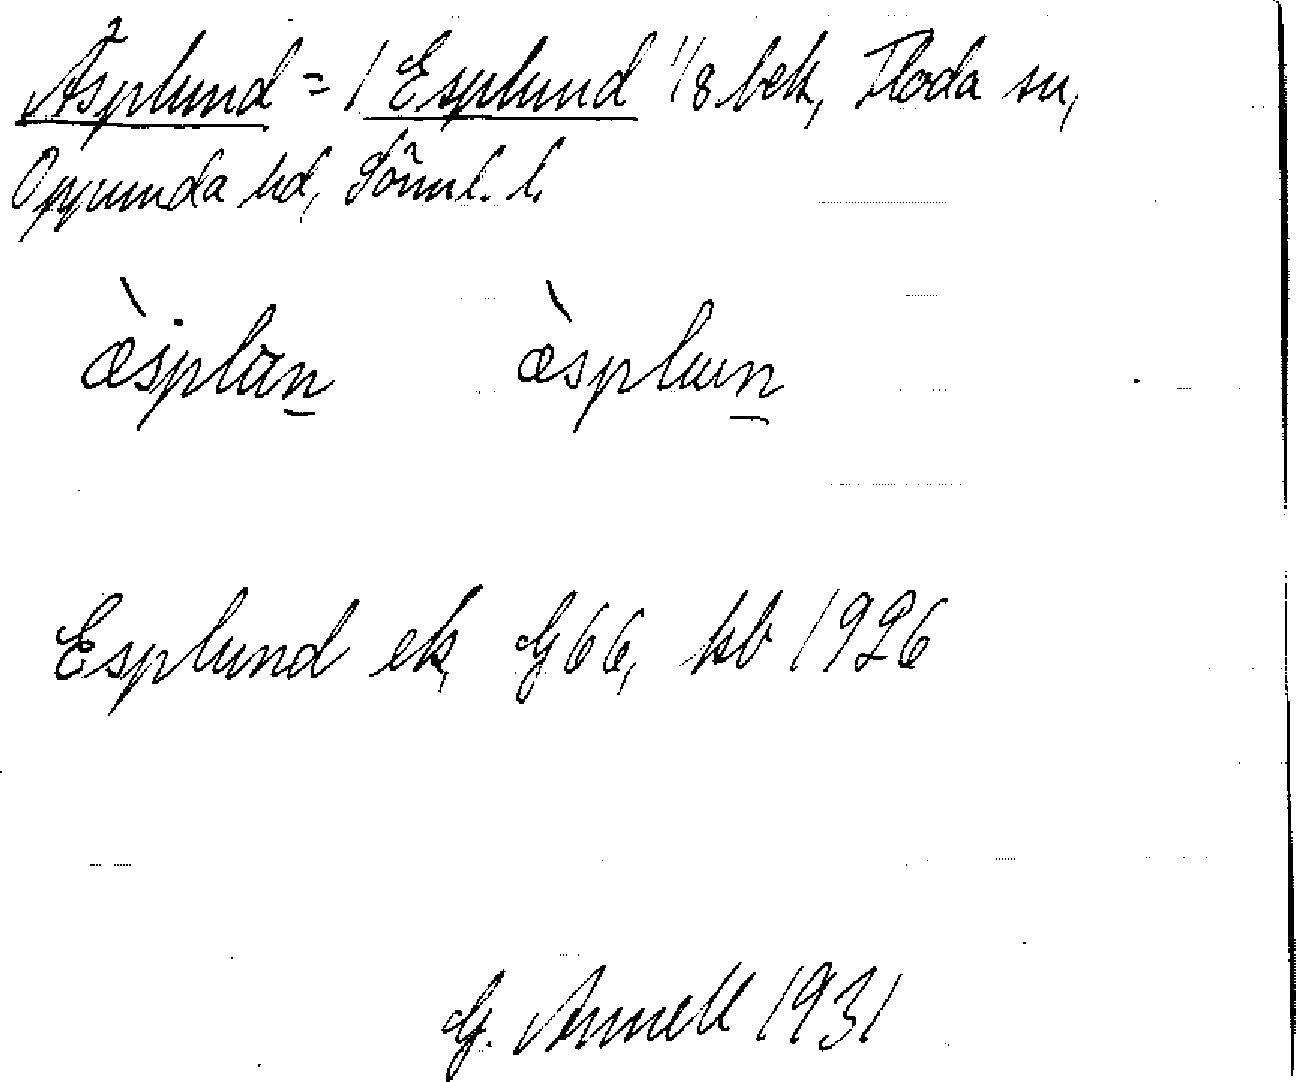 Åsplund = 1 Esplund 1/8 bek, Floda sn,
Oppunda hd, Söml. l.
æ̀splan æ̀splun
Esplund ek, G 66, kb 1926
G. Annell 1931